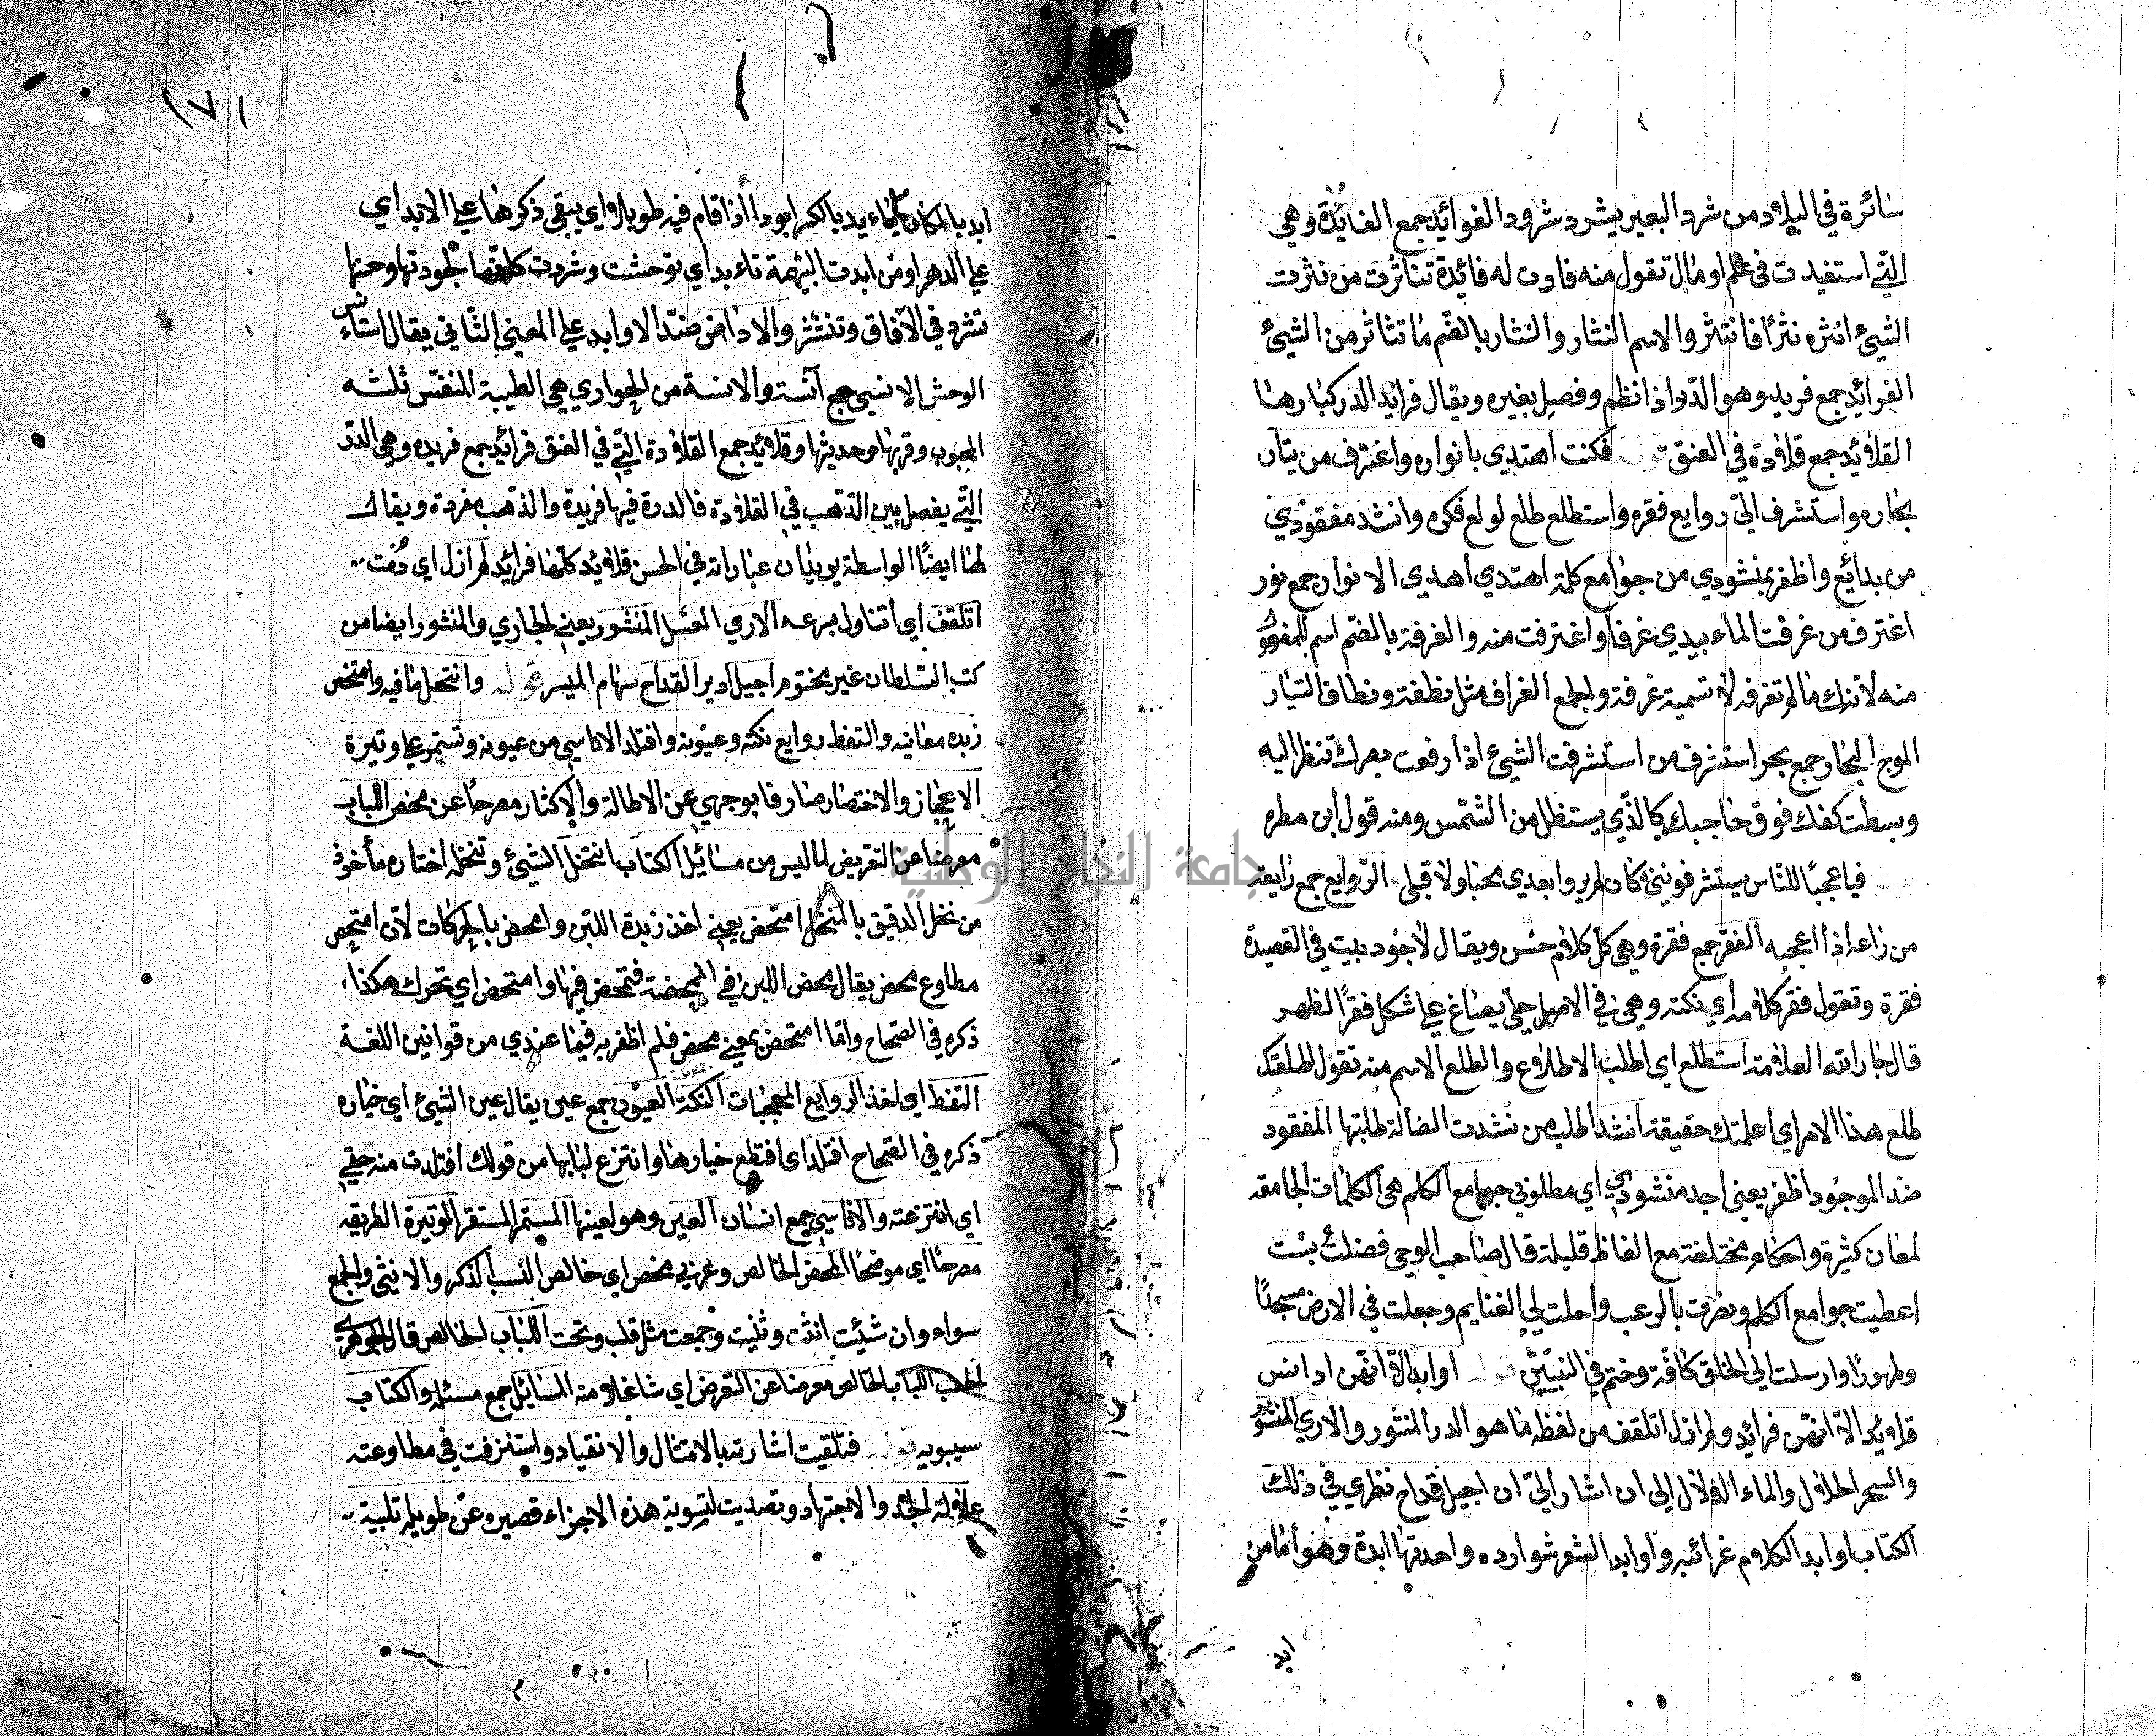 سائرة في البلاد من شرد البعير يشرد شرود الفوائد جمع الفايدة وهي
التي استفيدت في علم او مال تقول منه فادت له فائدة تناثرت من نثرت
الشيئ انثره نثرًا فانتثر والاسم النثار والنثار بالضم ما تناثر من الشيئ
الفرائد جمع فريد وهو الدر اذا نظم وفصل بغيره ويقال فرائد الدر كبارها
القلائد جمع قلادة في العنق قوله فكنت اهتدي بانواره واغترف من تيار
بحاره واستشرف الي روايع فقره واستطلع طلع لولع فكره وانشد مفقودي
من بدائع واظفر بمنشودي من جوامع كلمة اهتدي اهدي الانوار جمع نور
اغترف من غرفت الماء بيدي غرفا واغترفت منه والغرفة بالضم اسم للمفعول
منه لانك ما لم تغرفه لا تسميه غرفة والجمع الغراف مثل نطفة ونطاف التيار
الموج البحار جمع بحر استشرف من استشرفت الشيئ اذا رفعت بصرك تنظر اليه
وبسطت كفك فوق حاجبك كالذي يستظل من الشمس ومنه قول ابن مطره
فيا عجبًا للناس يستشرفونني كان لم يروا بعدي محبا ولا قبلي الروايع جمع رايعة
من راعه اذا اعجبه الفقر جمع فقرة وهي كل كلام حسن ويقال لاجود بيت في القصيدة
فقرة وتقول فقر كلامه اي نكته وهي في الاصل حلي يصاغ علي شكل فقر الظهر
قال جار الله العلامة استطلع اي اطلب الاطلاع والطلع الاسم منه تقول اطلعتك
طلع هذا الامر اي اعلمتك حقيقته انشد اطلب من نشدت الضالة طلبتها المفقود
ضد الموجود اظفر يعني اجد منشودي اي مطلوبي جوامع الكلم هي الكلمات الجامعة
لمعان كثيرة واحكام مختلفة مع الفاظ قليلة قال صاحب الوحي فضلت بست
اعطيت جوامع الكلم ونصرت بالرعب واحلت لي الغنايم وجعلت في الارض مسجدًا
وطهورًا وارسلت الي الخلق كافة وختم في النبيين قوله اوابد الا انهن اوانس
قلائد الا انهن فرائد ولم ازل اتلقف من لفظه ما هو الدر المنثور والاري المنشور
والسحر الحلال والماء الزلال الي ان اشار الي ان اجيل قداح نظري في ذلك
الكتاب اوابد الكلام غرائبه واوابد الشعر شوارده واحدتها ابدة وهو اما من
ابد
١٧١
ابد بالمكان يابد بالكسر ابودا اذا قام فيه طويلا اي يبقي ذكرها علي الابد اي
علي الدهر او من ابدت البهيمة تاءبد اي توحشت وشردت كانها لجودتها وحسنها
تشرد في الآفاق وتنتشر والاوانس ضد الاوابد علي المعني الثاني يقال استاءنس
الوحش الانسي جمع آنسة والانسة من الجواري هي الطيبة النفس ثلثه
المحبوب وقربها وحديثها وقلائد جمع القلادة التي في العنق فرائد جمع فريده وهي الدر
التي يفصل بين الذهب في القلادة فالدرة فيها فريدة والذهب مفردة ويقال
لها ايضًا الواسطة يريد ان عباراته في الحسن قلائد كلها فرائد لم ازل اي دمت
اتلقف اي اتناول بسرعه الاري العسل المنشور يعني الجاري والمنشور ايضا من
كتب السلطان غير مختوم اجيل ادير القداح سهام الميسر قوله وانتخل ما فيه وامتخض
زبده معانيه والتقط روايع نكته وعيونه وافتلذ الاناسي من عيونه وتستمر علي وتيرة
الاعجاز والاختصار صارفا بوجهي عن الاطالة والاكثار مصرحًا عن محض اللباب
معرضا عن التعريض لما ليس من مسائل الكتاب انتخل الشيئ وتنخل اختاره مأخوذ
من نخل الدقيق بالمنخل امتخض يعني اخذ زبدة اللبن وامخض بالحركات لان امتخض
مطاوع مخض يقال مخض اللبن في الممخضة فتمخض فيها وامتخض اي تحرك هكذا
ذكره في الصحاح واما امتخض بمعني مخض فلم اظفر به فيما عندي من قوانين اللغة
التقط اي اخذ الروايع المعجبات النكتة العيون جمع عين يقال عين الشيئ اي خياره
ذكره في الصحاح افتلذ اي اقتطع خيارها وانتزع لبابها من قولك افتلذت منه حقي
اي انتزعته والاناسي جمع انسان العين وهو لعينها المستمر المستقر الوتيرة الطريقه
مصرحًا اي موضحًا المحض الخالص وعربي محض اي خالص النسب الذكر والانثي والجمع
سواء وان شئت انثت وثنيت وجمعت مثل قلب وبحت اللباب الخالص قال الجوهري
الحسب اللباب الخالص معرضا عن التعرض اي شاغلا منه المسائل جمع مسئله والكتاب
سيبويه قوله فتلقيت اشارته بالامتثال والانقياد واستنزفت في مطاوعته
علالة الجد والاجتهاد وتصديت لتسوية هذه الاجزاء قصيره عن طويله تلبية
جامعة النجاح الوطنية